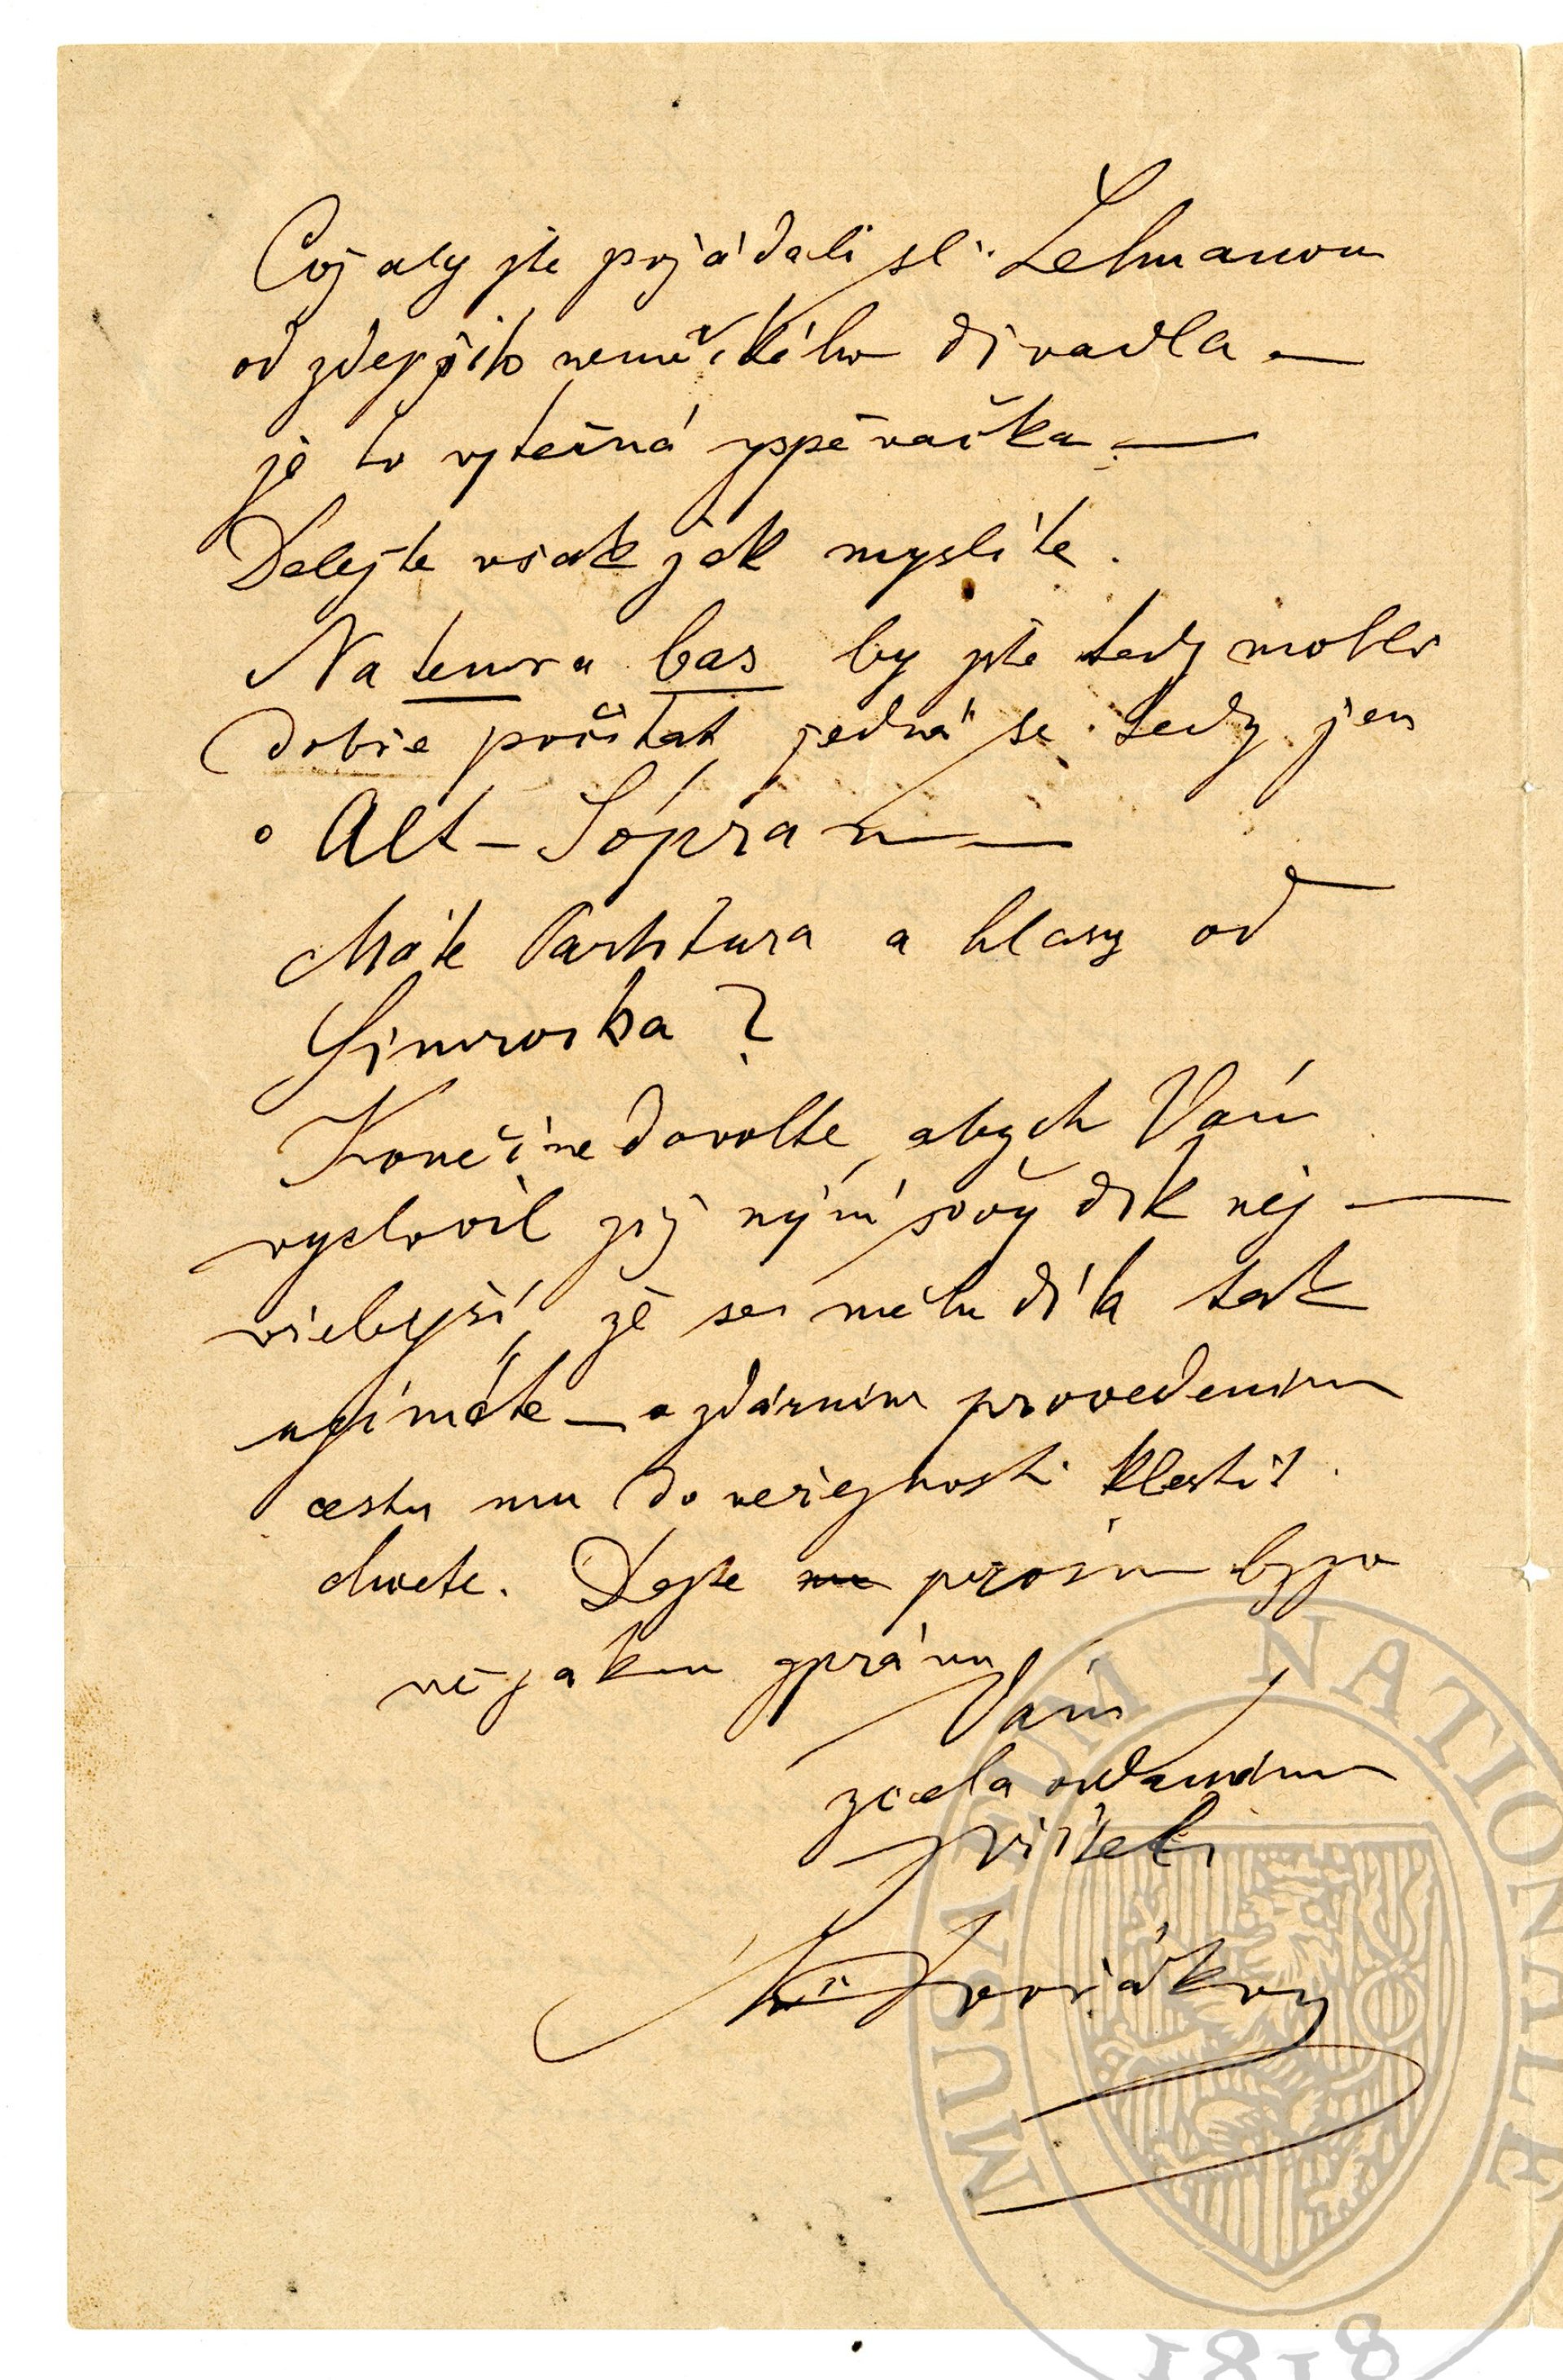 Což aby jste požádali sl. Lehmanovu
od zdejšího německého divadla —
je to výtečná zpěvačka —
Dělejte však jak myslíte.
Na tenora bas by jste tedy mohli
dobře počítat, jedná se tedy jen
o Alt – Sopran —
Máte Partitura a hlasy od
Simrocka?
Konečně dovolte, abych Vám
vyslovil již nyní svůj dík nej —
vřelejší, že se mého díla tak
ujímáte — a zdárním provedením
cestu mu do veřejnosti klestit
chcete. Dejte prosím brzo
nějakou zprávu
Vám
zcela oddaném
příteli
Dvořákovi
MUSAEUM NATIONALE
1818